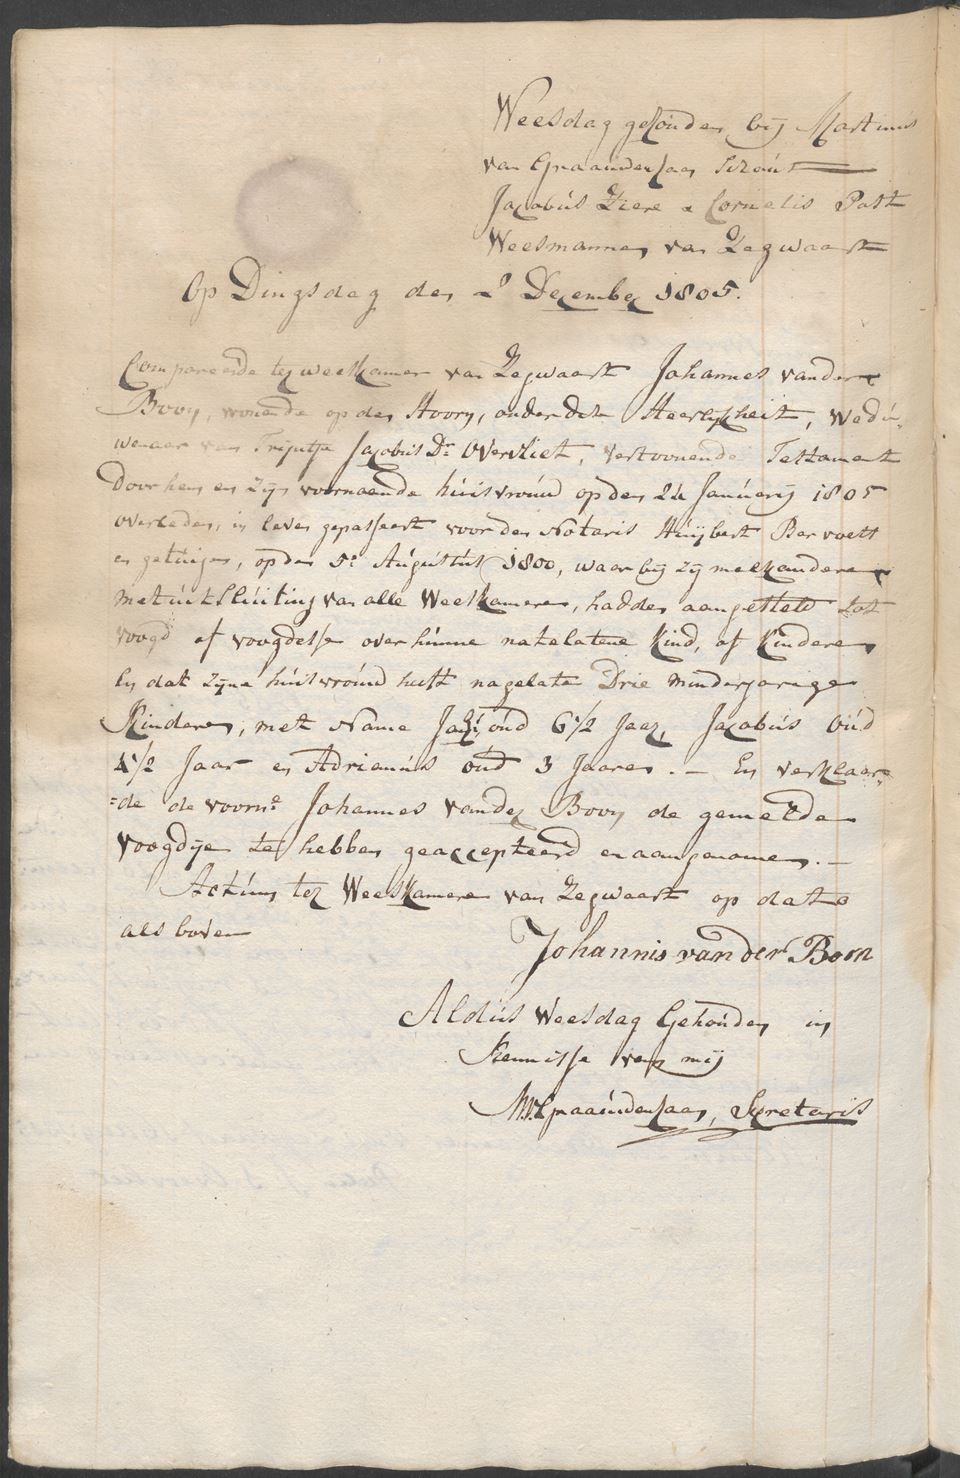 Weesdag gehouden bij Martinus
van Graauwenhaan Schout
Jacobus Ziere & Cornelis Post
Weesmannen van Zegwaart
Op Dingsdag den Dezember 1805.
Compareerde ter weeskamer van Zegwaart Johannes vander
Boon, wonende op den Hoorn, onder dese Heerlykheit, wedu-
wenaar van Tryntje Jacobus Dr Overvliet, vertoonende Testament
door hem en zijn voornoemde huisvrouw op den 24 Januarij 1805
overleden, in leven gepasseert voor den Notaris Huijbert Bervoets
en getuigen, op den 5e Augustus 1800, waar bij zij malkanderen
met uitsluiting van alle Weeskameren, hadden aangesteld tot
voogd of voogdesse over hunne natelatene Kind, of Kinderen
En dat zijne huisvrouw heeft nagelate Drie minderjarige
Kinderen, met Name oud 6 1/2 Jaar, Jacobus Oud
4 1/2 Jaar en Adrianus oud 3 Jaaren. — En verklaar-
=de de voorne Johannes vander Boon de gemelde
voogdije te hebben geaccepteerd en aangenomen. —
Actum ter Weeskamere van Zegwaart op dato
als boven
Johannis van der Boon
Aldus Weesdag Gehouden in
Kennisse van mij
Secretaris